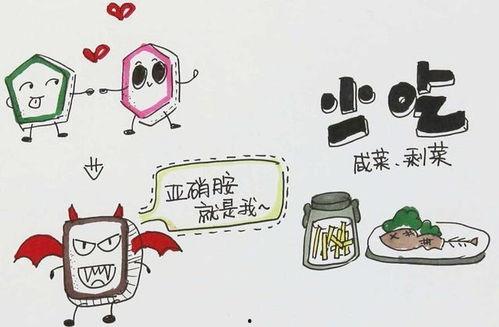 少吃
咸菜、剩菜
亚硝胺
就是我~